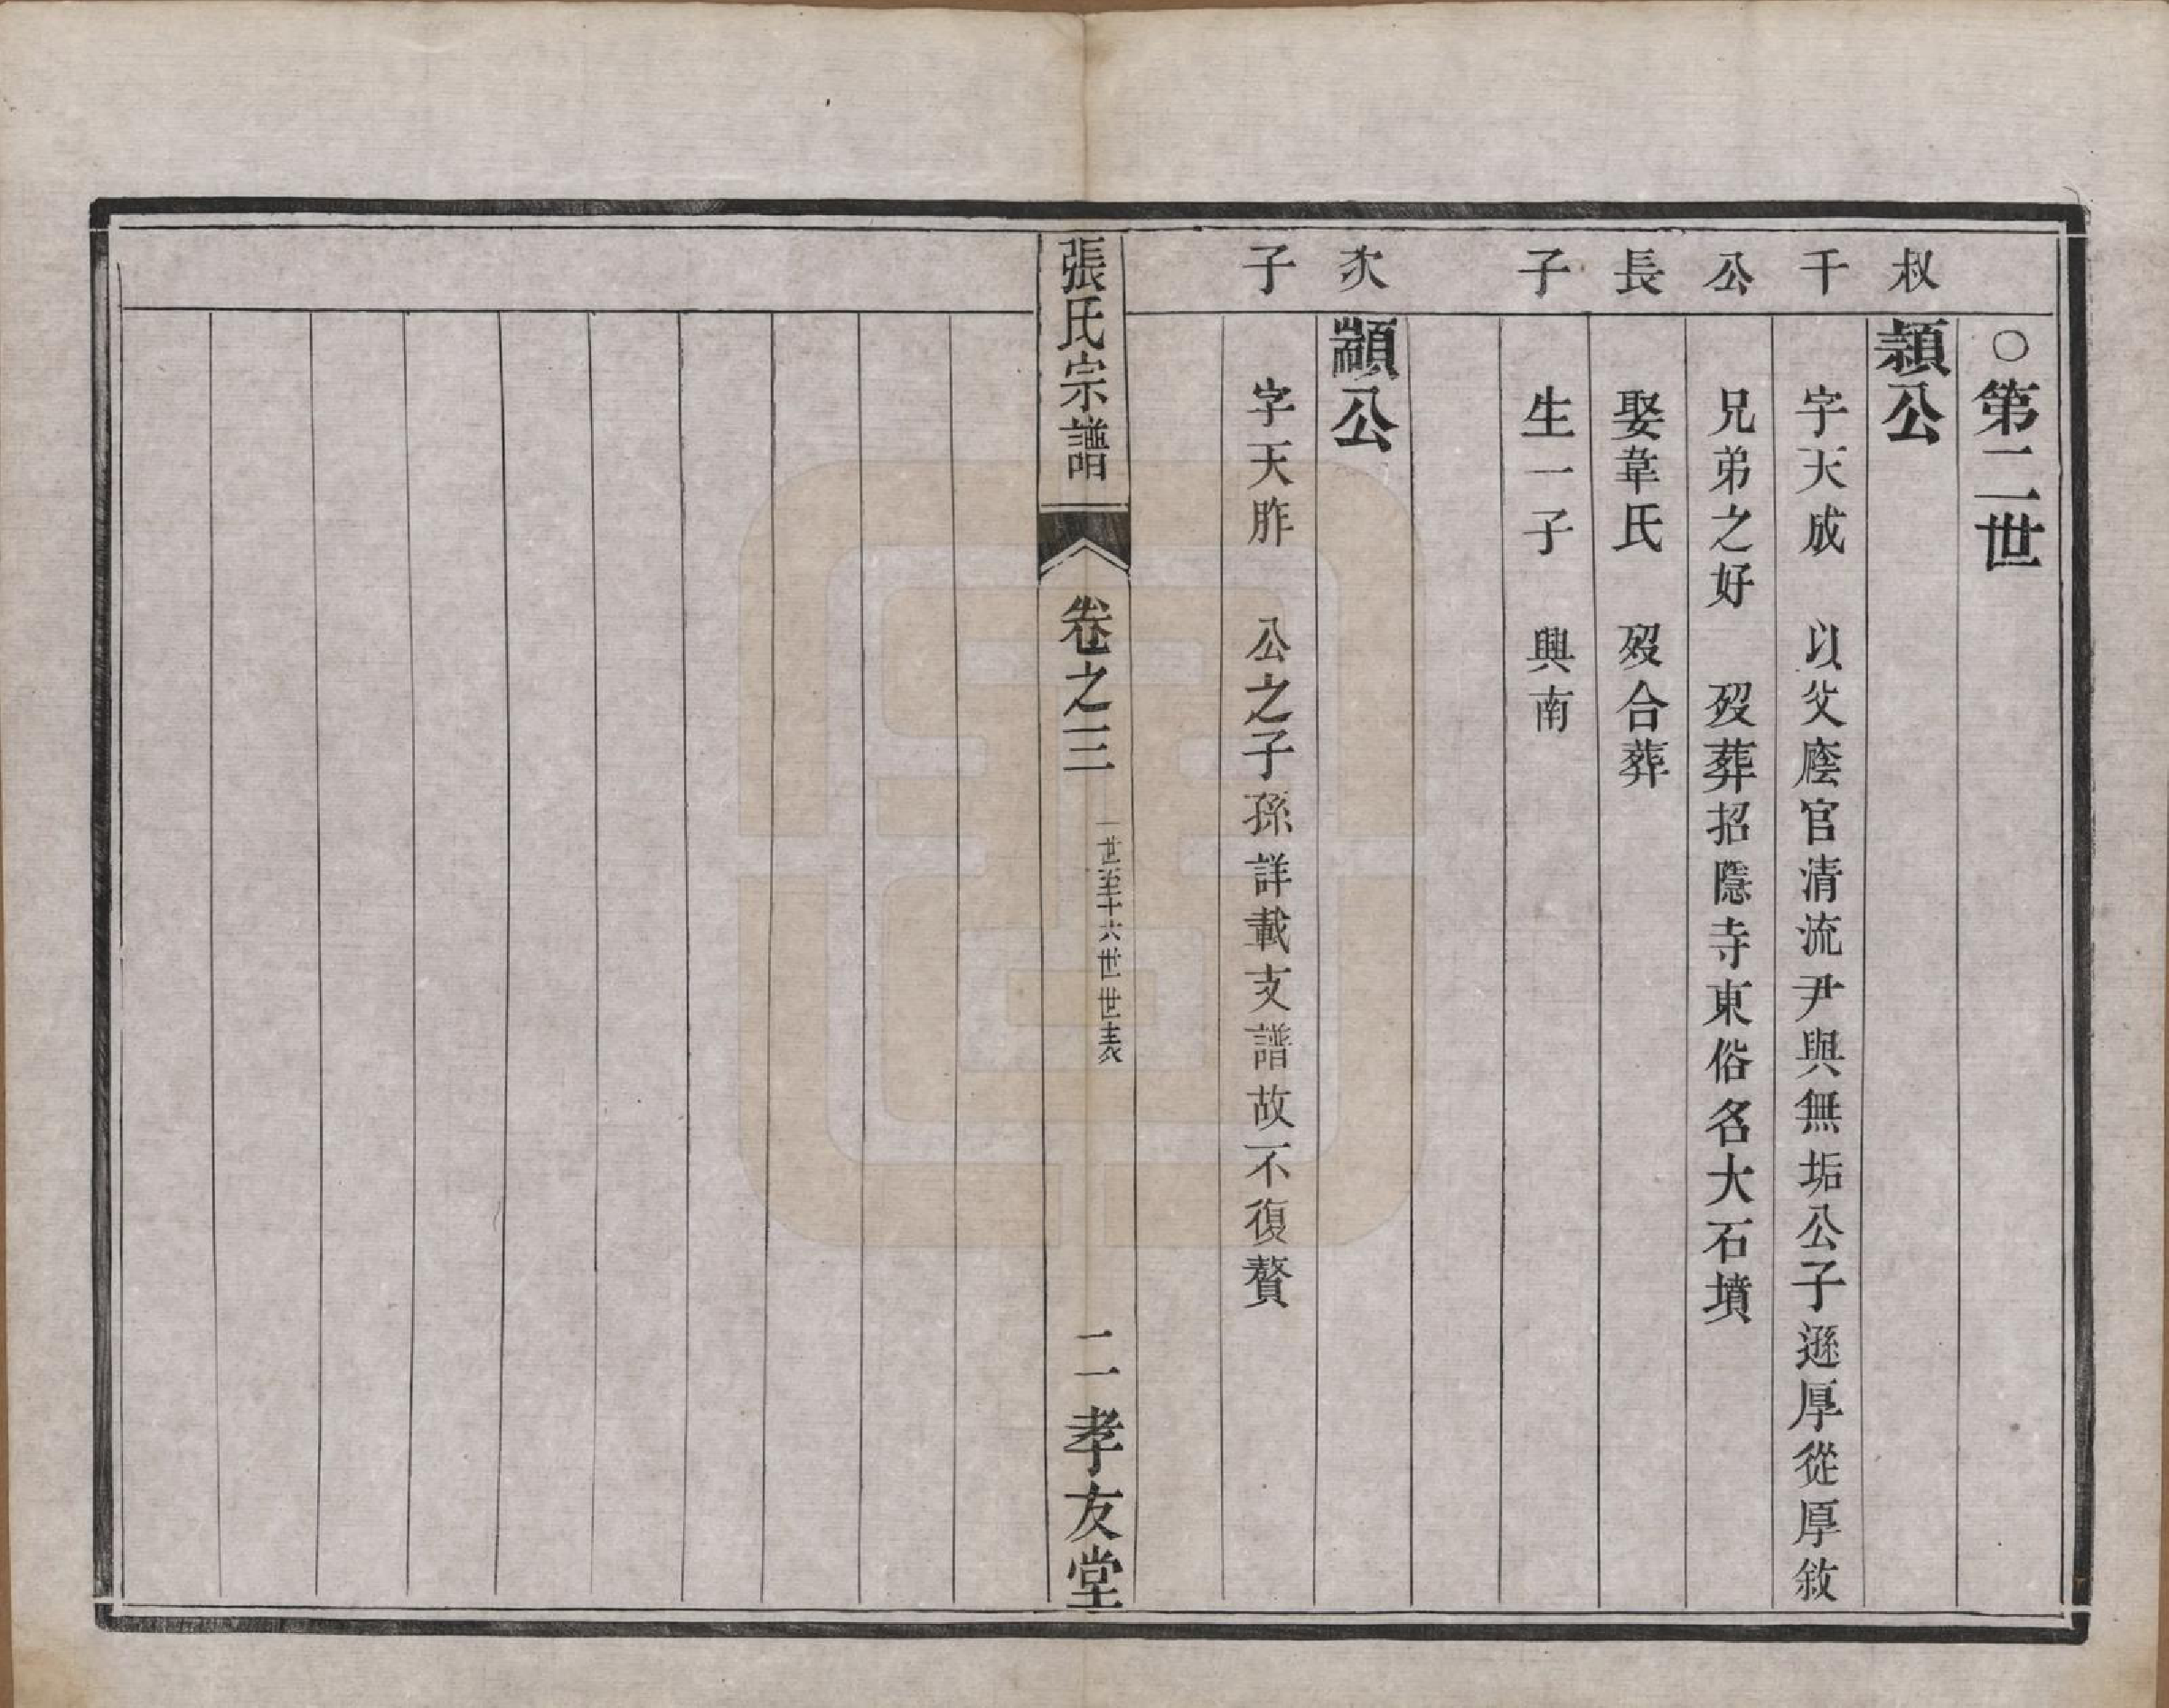 ○第二世
叔 頴公
千 字天成 以父廕官清流尹與無垢公子遜厚從厚敘
公 兄弟之好 歿葬招隱寺東俗名大石墳
長 娶韋氏 歿合葬
子 生一子 興南
次 顓公
子 字天胙 公之子孫詳載支譜故不復贅
張氏宗譜 卷之三 一世至十六世世表 二 孝友堂